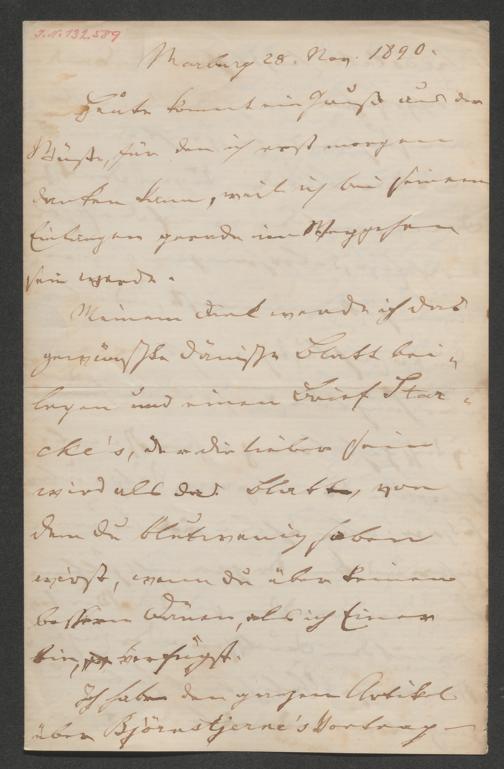 J.N. 132.589
Marburg 28. Nov. 1890.
Heute kommt ein Gruß aus der
Wüste, für den ich erst morgen
danken kann, weil ich bei seinem
Einlangen gerade im Weggehen
sein werde.
Meinem Dank werde ich das
gewünschte dänische Blatt bei-
legen und einen Brief Star-
cke's, der dir lieber sein
wird als das Blatt, von
dem du blutwenig haben
wirst, wenn du über keinen
bessern Dänen, als ich Einer
bin, verfügst.
Ich habe den ganzen Artikel
über Björnstjerne's Vortrag